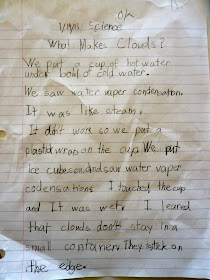 Science
What Makes Clouds?
We put a cup of hot water
under bowl of cold water.
We saw water vaper condensation.
It was like steam.
It don't work so we put a
plastic wrap on the cup. We put
ice cubes on. and saw water vaper
codensations I touched the cup
and It was wet. I leared
that clouds don't stay in a
small container. They stick on
the edge.